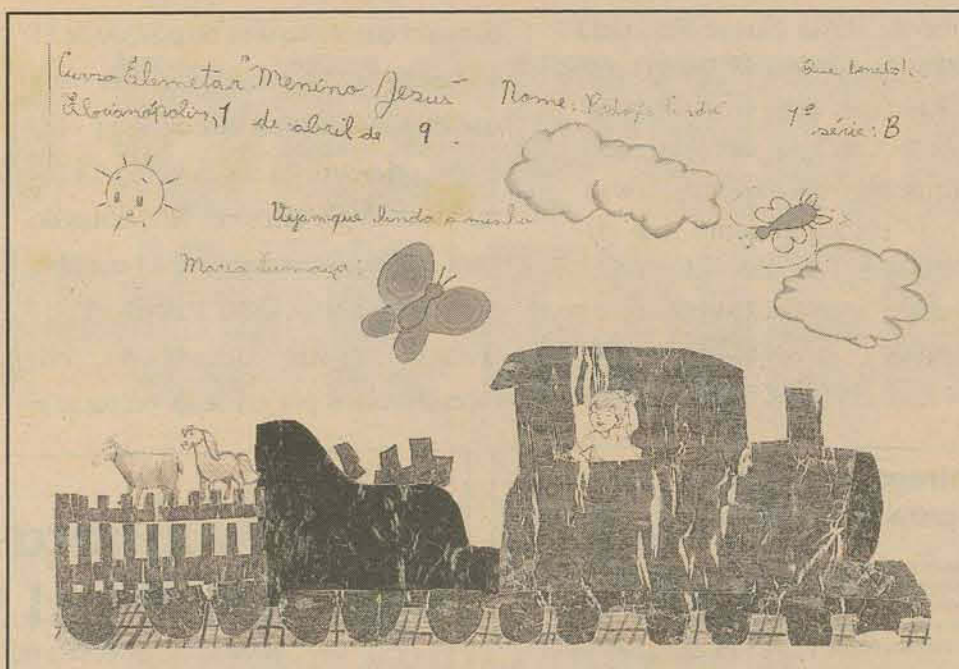 Curso Elemetar "Menino Jesus"
Nome:
Que lindo!
Florianópolis, 1 de abril de 9.
1ª série: B
Vejam que linda a minha
Maria fumaça: